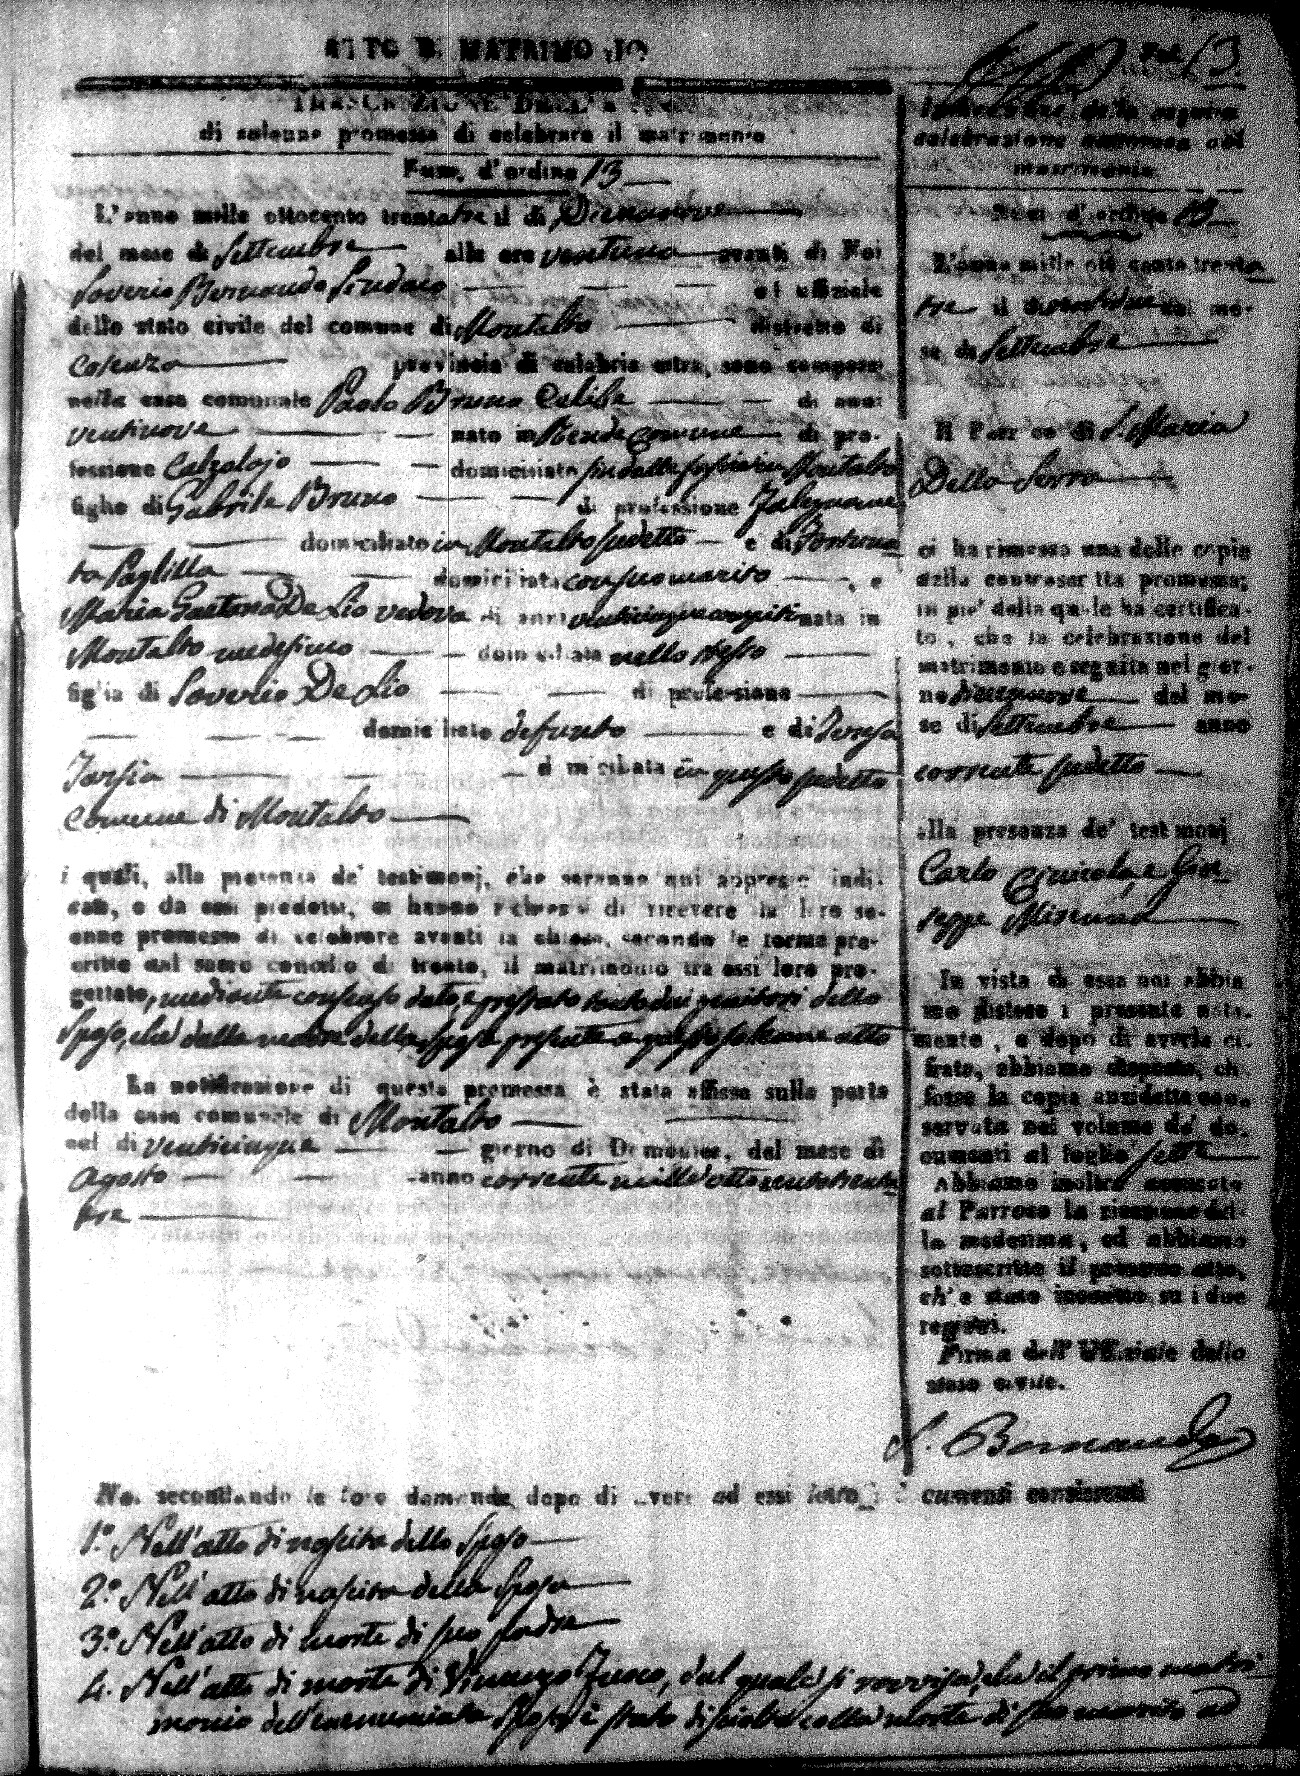 ATTO DI MATRIMONIO
13
di solenne promessa di celebrare il matrimonio
Num. d'ordine 13
L'anno mille ottocento trentatre il di Diecinove
del mese di Settembre alle ore ventuno avanti di Noi
Saverio Bernaudo Sindaco ed uffiziale
dello stato civile del comune di Montalto distretto di
Cosenza provincia di calabria citra, sono comparsi
nella casa comunale Paolo Bruno Celibe di anni
ventinove nato in Rende comune di pro-
fessione Calzolajo domiciliato in Montalto
figlio di Gabriele Bruno di professione Falegname
domiciliato in Montalto sudetto e di Fortuna-
ta Paglilla domiciliata con suo marito, e
Maria Gaetana De Lio vedova di anni venticinque compiti nata in
Montalto medesimo domiciliata nello stesso
figlia di Saverio De Lio di professione
domiciliato defunto e di Teresa
Tarsia domiciliata in questo sudetto
Comune di Montalto
i quali, alla presenza de' testimonj, che saranno qui appresso indi-
cati, e da essi prodotti, ci hanno richiesto di ricevere la loro so-
lenne promessa di celebrare avanti la chiesa, secondo le forme pre-
scritte dal sacro concilio di trento, il matrimonio tra essi loro pro-
gettato, mediante consenso dato, e prestato tanto dai genitori dello
Sposo, che dalla madre della Sposa presente a questo solenne atto
La notificazione di questa promessa è stata affissa sulla porta
della casa comunale di Montalto
nel di venticinque giorno di Domenica, del mese di
Agosto anno corrente mille ottocentotrenta
tre
Indicazione della seguita
celebrazione canonica del
matrimonio.
Num. d'ordine 13
L'anno mille otto cento trenta-
tre il del me-
se di Settembre
Il Parroco di S. Maria
Della Serra
ci ha rimessa una delle copie
della controscritta promessa;
in piè della quale ha certifica-
to, che la celebrazione del
matrimonio è seguita nel gior-
no Diecinove del me-
se di Settembre anno
corrente sudetto
alla presenza de' testimonj
Carlo e Giu-
seppe
In vista di essa noi abbia-
mo disteso il presente nota-
mento, e dopo di averla ci-
frata, abbiamo disposto, che
fosse la copia anzidetta con-
servata nel volume de' do-
cumenti al foglio sette
Abbiamo inoltre accusato
al Parroco la ricezione del-
la medesima, ed abbiamo
sottoscritto il presente atto,
ch'è stato inserito su i due
registri.
Firma dell'Uffiziale dello
stato civile.
S. Bernaudo
Noi secondando le loro domande, dopo di avere ad essi letto i documenti consistenti
1.º Nell'atto di nascita dello Sposo
2.º Nell'atto di nascita della Sposa
3.º Nell'atto di morte di suo padre
4. Nell'atto di morte di Vincenzo Fusco, dal quale si ravvisa, che il primo matri-
monio dell'enunciata Sposa è stato disciolto colla morte di suo marito ad